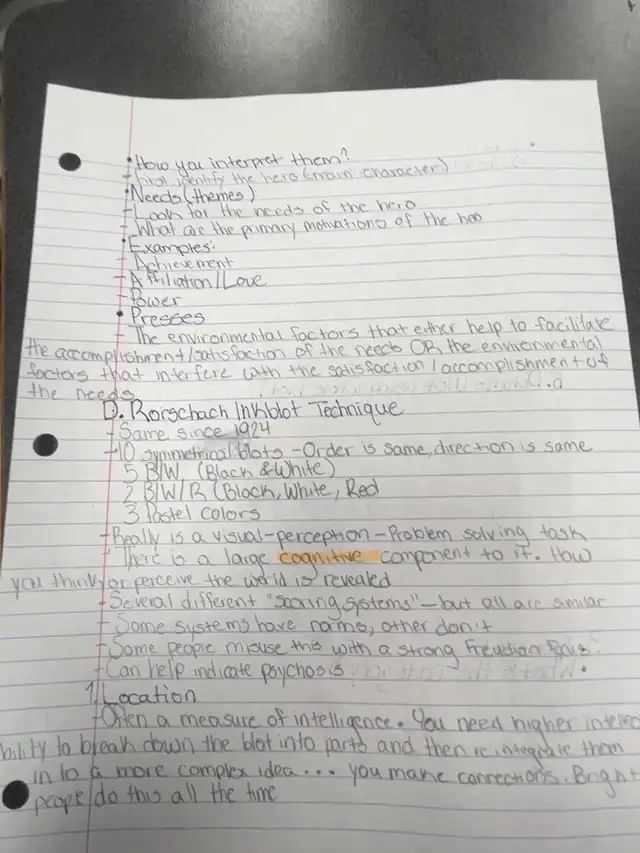 • How you interpret them?
- First identify the hero (main character)
• Needs (themes)
- Look for the needs of the hero
- What are the primary motivations of the hero
• Examples:
- Achievement
- Affiliation/Love
- Power
• Presses
- The environmental factors that either help to facilitate
the accomplishment/satisfaction of the needs OR the environmental
factors that interfere with the satisfaction/accomplishment of
the needs
D. Rorschach Inkblot Technique
- Same since 1924
- 10 symmetrical blots - Order is same, direction is same
5 B/W (Black & White)
2 B/W/R (Black, White, Red
3 Pastel colors
- Really is a visual-perception - Problem solving task
- There is a large cognitive component to it. How
you think or perceive the world is revealed
- Several different "scoring systems" - but all are similar
- Some systems have norms, other don't
- Some people misuse this with a strong Freudian
- Can help indicate psychosis
1. Location
- Often a measure of intelligence. You need higher
bility to break down the blot into parts and then reintegrate them
in to a more complex idea... you make connections. Bright
people do this all the time